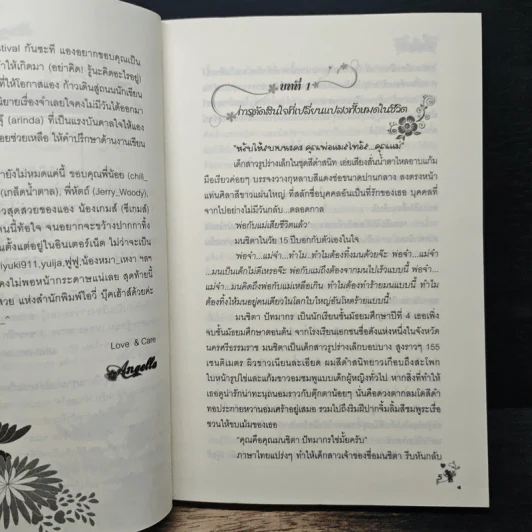 stival กันซะที แองอยากขอบคุณเป็น
ทำให้เกิดมา (อย่าคิด! รู้นะคิดอะไรอยู่)
ที่ให้โอกาสแอง ก้าวเดินสู่ถนนนักเขียน
นิยายเรื่องจำเลยใจคงไม่มีวันได้ออกมา
(arinda) ที่เป็นแรงบันดาลใจให้แอง
อยช่วยเหลือ ให้คำปรึกษาด้านงานเขียน
ายังไม่หมดแค่นี้ ขอบคุณพี่น้อย (chill_
(เกลียดน้ำตาล), พี่หัตถ์ (Jerry_Woody),
วสุดสวยของแอง น้องเกมส์ (ซีเกมส์)
นนี้ท้อใจ จนอยากจะขว้างปากกาทิ้ง
ตั้งแต่อยู่ในอินเตอร์เน็ต ไม่ว่าจะเป็น
iyuki911,yuija,ฟูฟู,น้องหมา_เหงา ฯลฯ
คงไม่พอหน้ากระดาษแน่เลย สุดท้ายนี้
สวย แห่งสำนักพิมพ์ไอวี่ บุ๊คเฮ้าส์ด้วยค่ะ
Love & Care
Angolla
บทที่ 1
การตัดสินใจที่เปลี่ยนแปลงทั้งหมดในชีวิต
เด็กสาวรูปร่างเล็กในชุดสีดำสนิท เอ่ยเสียงสั่นปร่าตาไหลอาบแก้ม
มือเรียวค่อยๆ บรรจงวางกุหลาบสีแดงช่อขนาดปานกลาง ลงตรงหน้า
แท่นศิลาสีขาวแผ่นใหญ่ ที่สลักชื่อบุคคลอันเป็นที่รักของเธอ บุคคลที่
จากไปอย่างไม่มีวันกลับ...ตลอดกาล
พ่อกับแม่เสียชีวิตแล้ว!
มนชิตาในวัย 15 ปีบอกกับตัวเองในใจ
พ่อจ๋า...แม่จ๋า...ทำไม...ทำไมต้องทิ้งมนด้วยจ๊ะ พ่อจ๋า...แม่จ๋า
...มนเป็นเด็กไม่ดีเหรอจ๊ะ พ่อกับแม่ถึงต้องจากมนไปเร็วแบบนี้ พ่อจ๋า
...แม่จ๋า...มนคิดถึงพ่อกับแม่เหลือเกิน ทำไมต้องทำร้ายมนแบบนี้ ทำไม
ต้องทิ้งให้มนอยู่คนเดียวในโลกใบใหญ่อันโหดร้ายแบบนี้!
มนชิตา ปัทมากร เป็นนักเรียนชั้นมัธยมศึกษาปีที่ 4 เธอเพิ่ง
จบชั้นมัธยมศึกษาตอนต้น จากโรงเรียนเอกชนชื่อดังแห่งหนึ่งในจังหวัด
นครศรีธรรมราช มนชิตาเป็นเด็กสาวรูปร่างเล็กบอบบาง สูงราวๆ 155
เซนติเมตร ผิวขาวเนียนละเอียด ผมสีดำสนิทยาวเกือบถึงสะโพก
ใบหน้ารูปไข่และแก้มขาวอมชมพูแบบเด็กผู้หญิงทั่วไป หากสิ่งที่ทำให้
เธอดูน่ารักน่าทะนุถนอมราวกับตุ๊กตาน้อยๆ นั่นคือดวงตากลมโตสีดำ
ทอประกายหวานอมเศร้าอยู่เสมอ รวมไปถึงริมฝีปากจิ้มลิ้มสีชมพูระเรื่อ
ชวนให้ขบเม้มของเธอ
"คุณคือคุณมนชิตา ปัทมากรใช่มั้ยครับ"
ภาษาไทยแปร่งๆ ทำให้เด็กสาวเจ้าของชื่อมนชิตา รีบหันกลับ